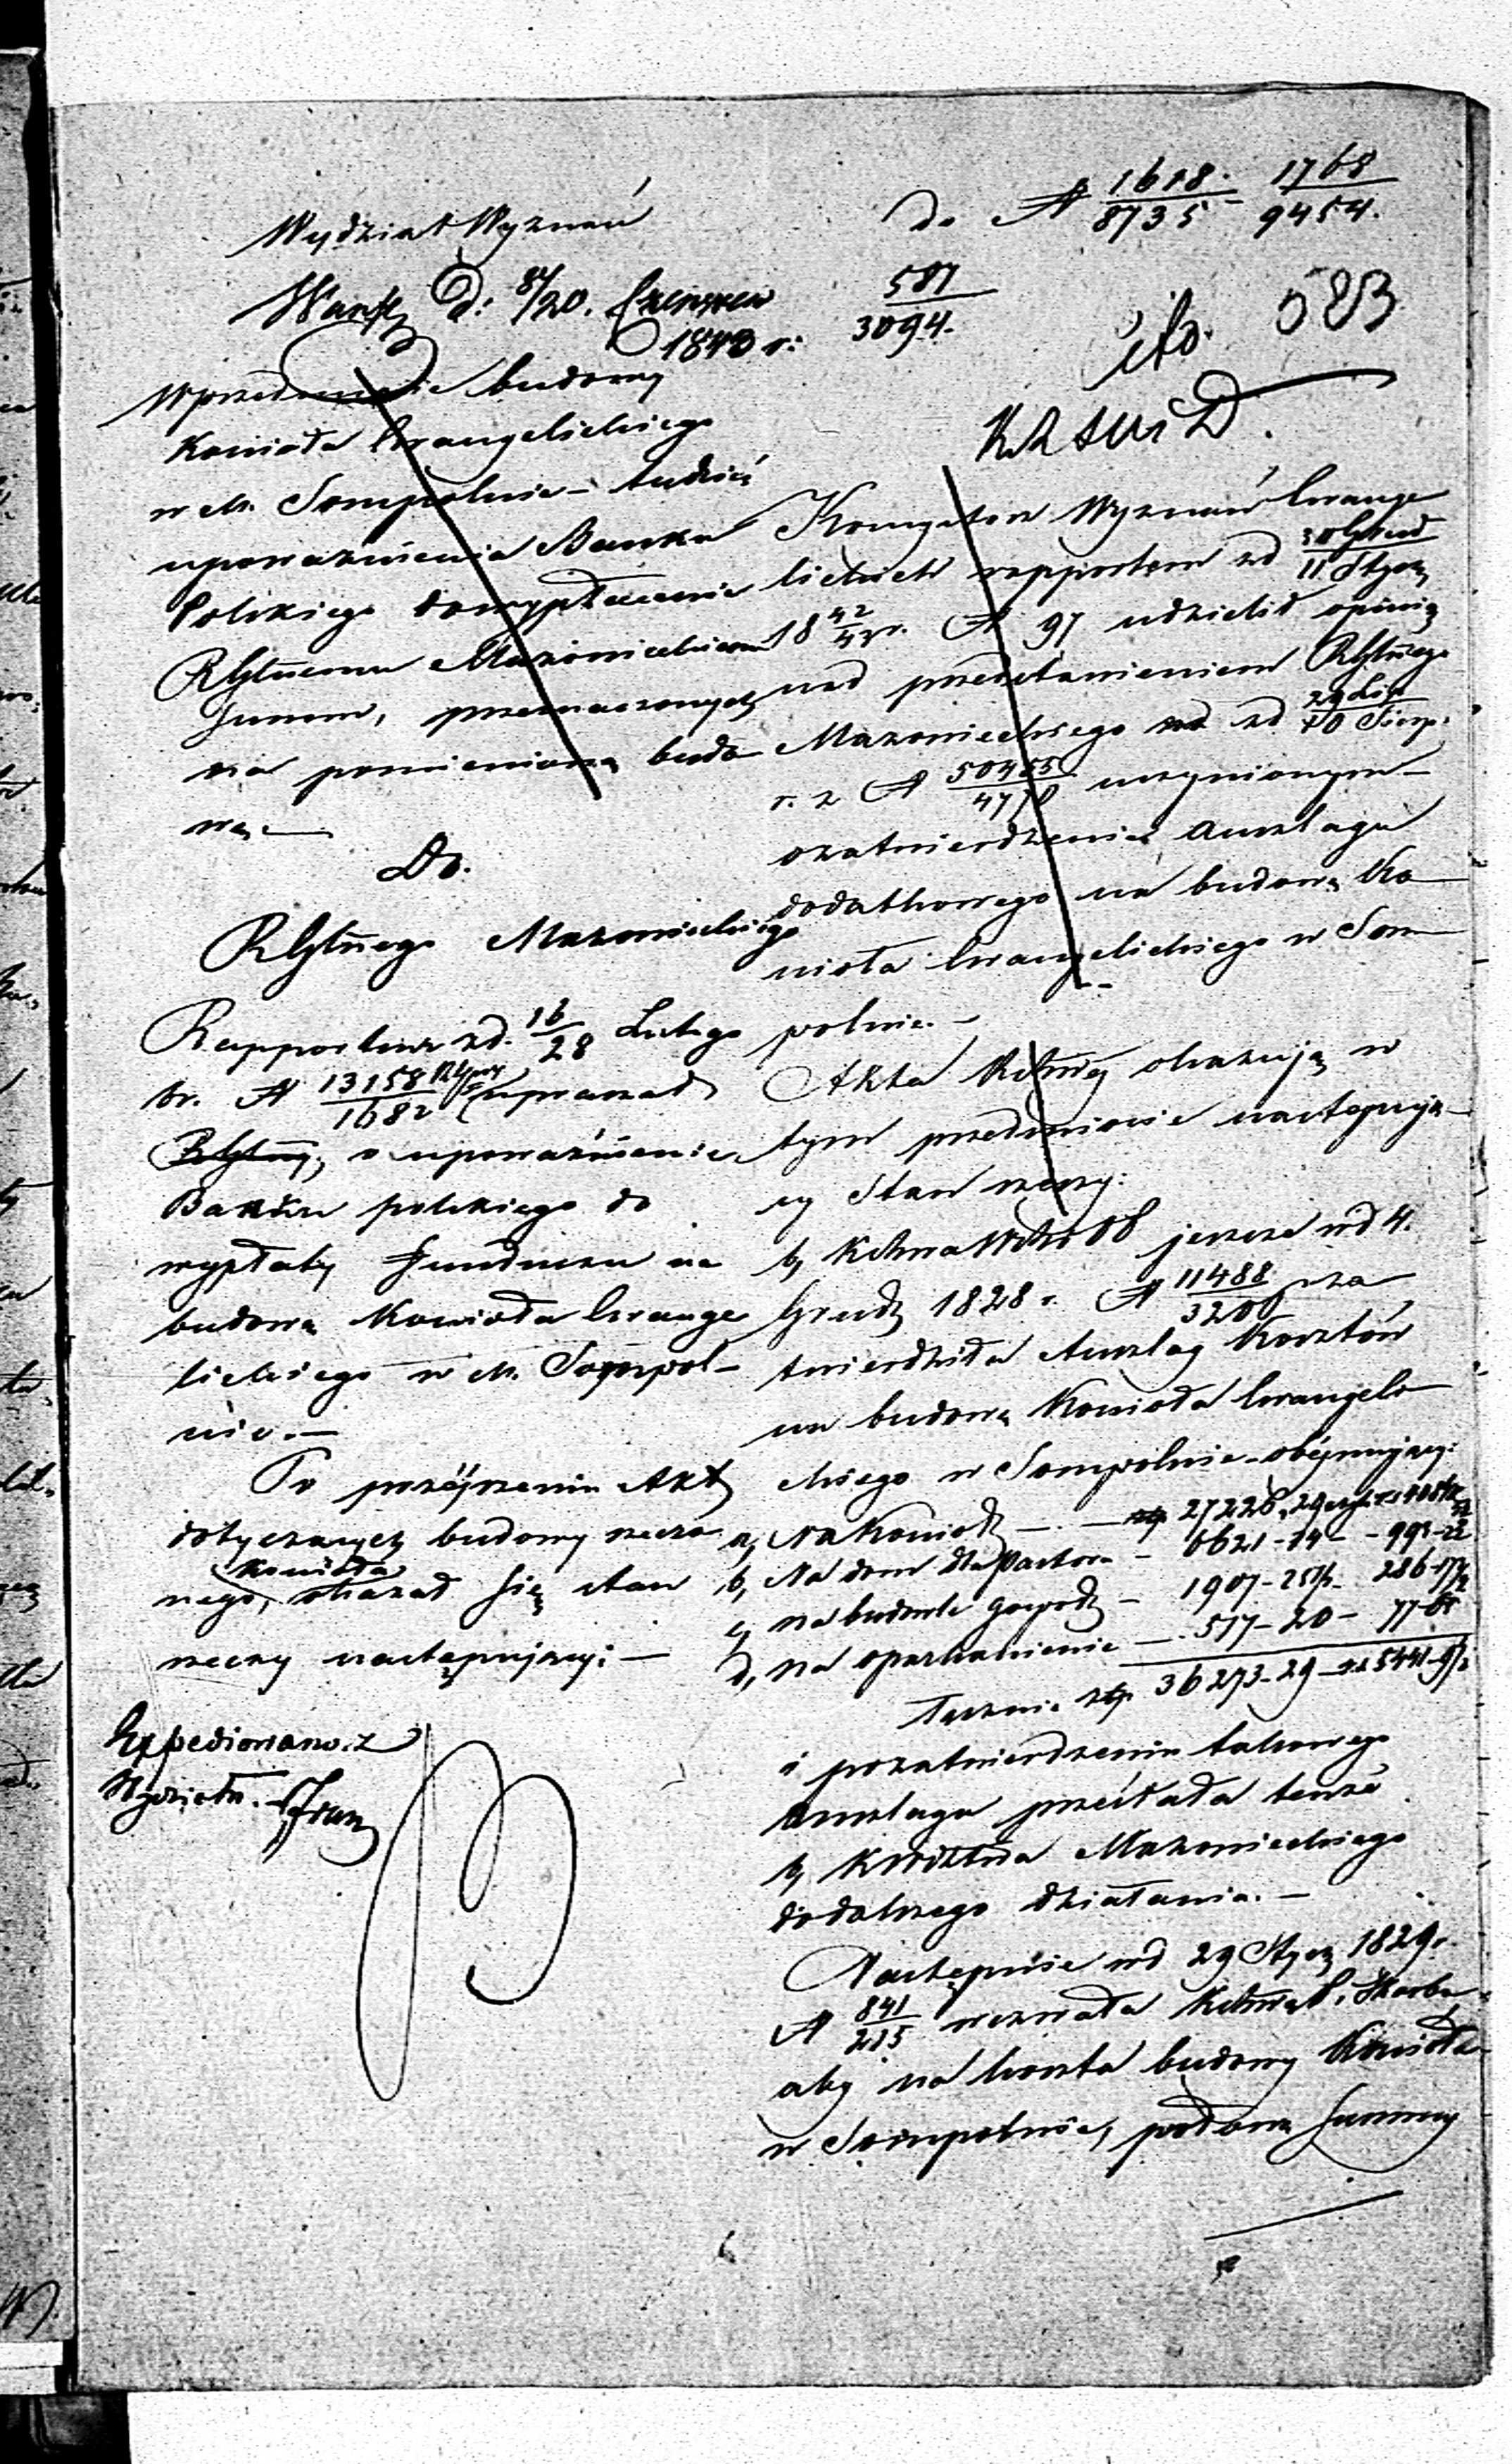 Wydział Wyznań
do N 1618. / 8735 - 1768 / 9454.
Warsz. d: 8/20. Czerwca
1843 r:
587 / 3094.
cito. 583
K.R.S.W.i D.
W przedmiocie budowy
Kościoła Ewangelickiego
w M. Sompolnie - tudzież
upoważnienia Banku
Polskiego do wypłacenia
RGbtnemu Mazowieckiemu
summ, przeznaczonych
na pomienioną budo
wę. —
Do.
RGbtnego Mazowieckiego
Rapportem z d. 16/28 Lutego
br. N 13158/1682 upraszał
RGbtny, o upoważnienie
Banku polskiego do
wypłaty funduszu na
budowę Kościoła Ewange
lickiego w M. Sompol-
nie. —
Po przejrzeniu Akt
dotyczących budowy rzeczo
nego, Kościoła okazał się stan
rzeczy następujący: —
Expediowano z
Wydziału.
Konsystorz Wyznań Ewange
lickich rapportem z d 30 Grud / 11 Stycz
18 42/43 r. N 97 udzielił opinią
nad przedstawieniem RGbtnego
Mazowieckiego z d 29 Lip / 10 Sierp.
r. z N uczynionym -
o zatwierdzenie Anszlagu
dodatkowego na budowę Ko
ścioła Ewangelickiego w Som
polnie. -
Akta okazują w
tym przedmiocie następują-
cy Stan rzeczy:
b, jeszcze w d 4.
Grudz 1828 r. N 11488 / 3200 za
twierdziła Anszlag Kosztów
na budowę Kościoła Ewangeli
ckiego w Sompolnie obejmujący:
a, Na Kościół — . — złp. 27226,
b, Na dom dla Pastora - 6621 - 14 - 993 - 22
c, na budowle gospodz - 1907 - 25 1/2 - 286 - 17 1/2
d, na oparkanienie — . 517 - 20 - 77 - 65
Łącznie złp. 36273 - 29 - rs 5441 - 9 1/2
i po zatwierdzeniu takowego
Anszlagu przesłała tenże
b, Mazowieckiego
do dalszego działania. —
Następnie w d 29 Stycz 1829 r.
N 841 / 215 wezwała Skarbu
aby na koszta budowy Kościoła
w Sompolnie, podane Summy